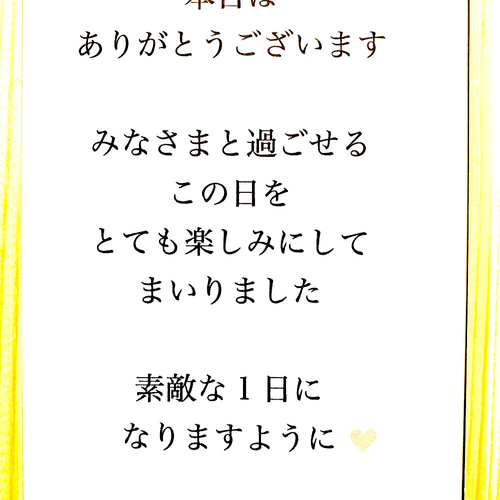 本日は
ありがとうございます
みなさまと過ごせる
この日を
とても楽しみにして
まいりました
素敵な1日に
なりますように